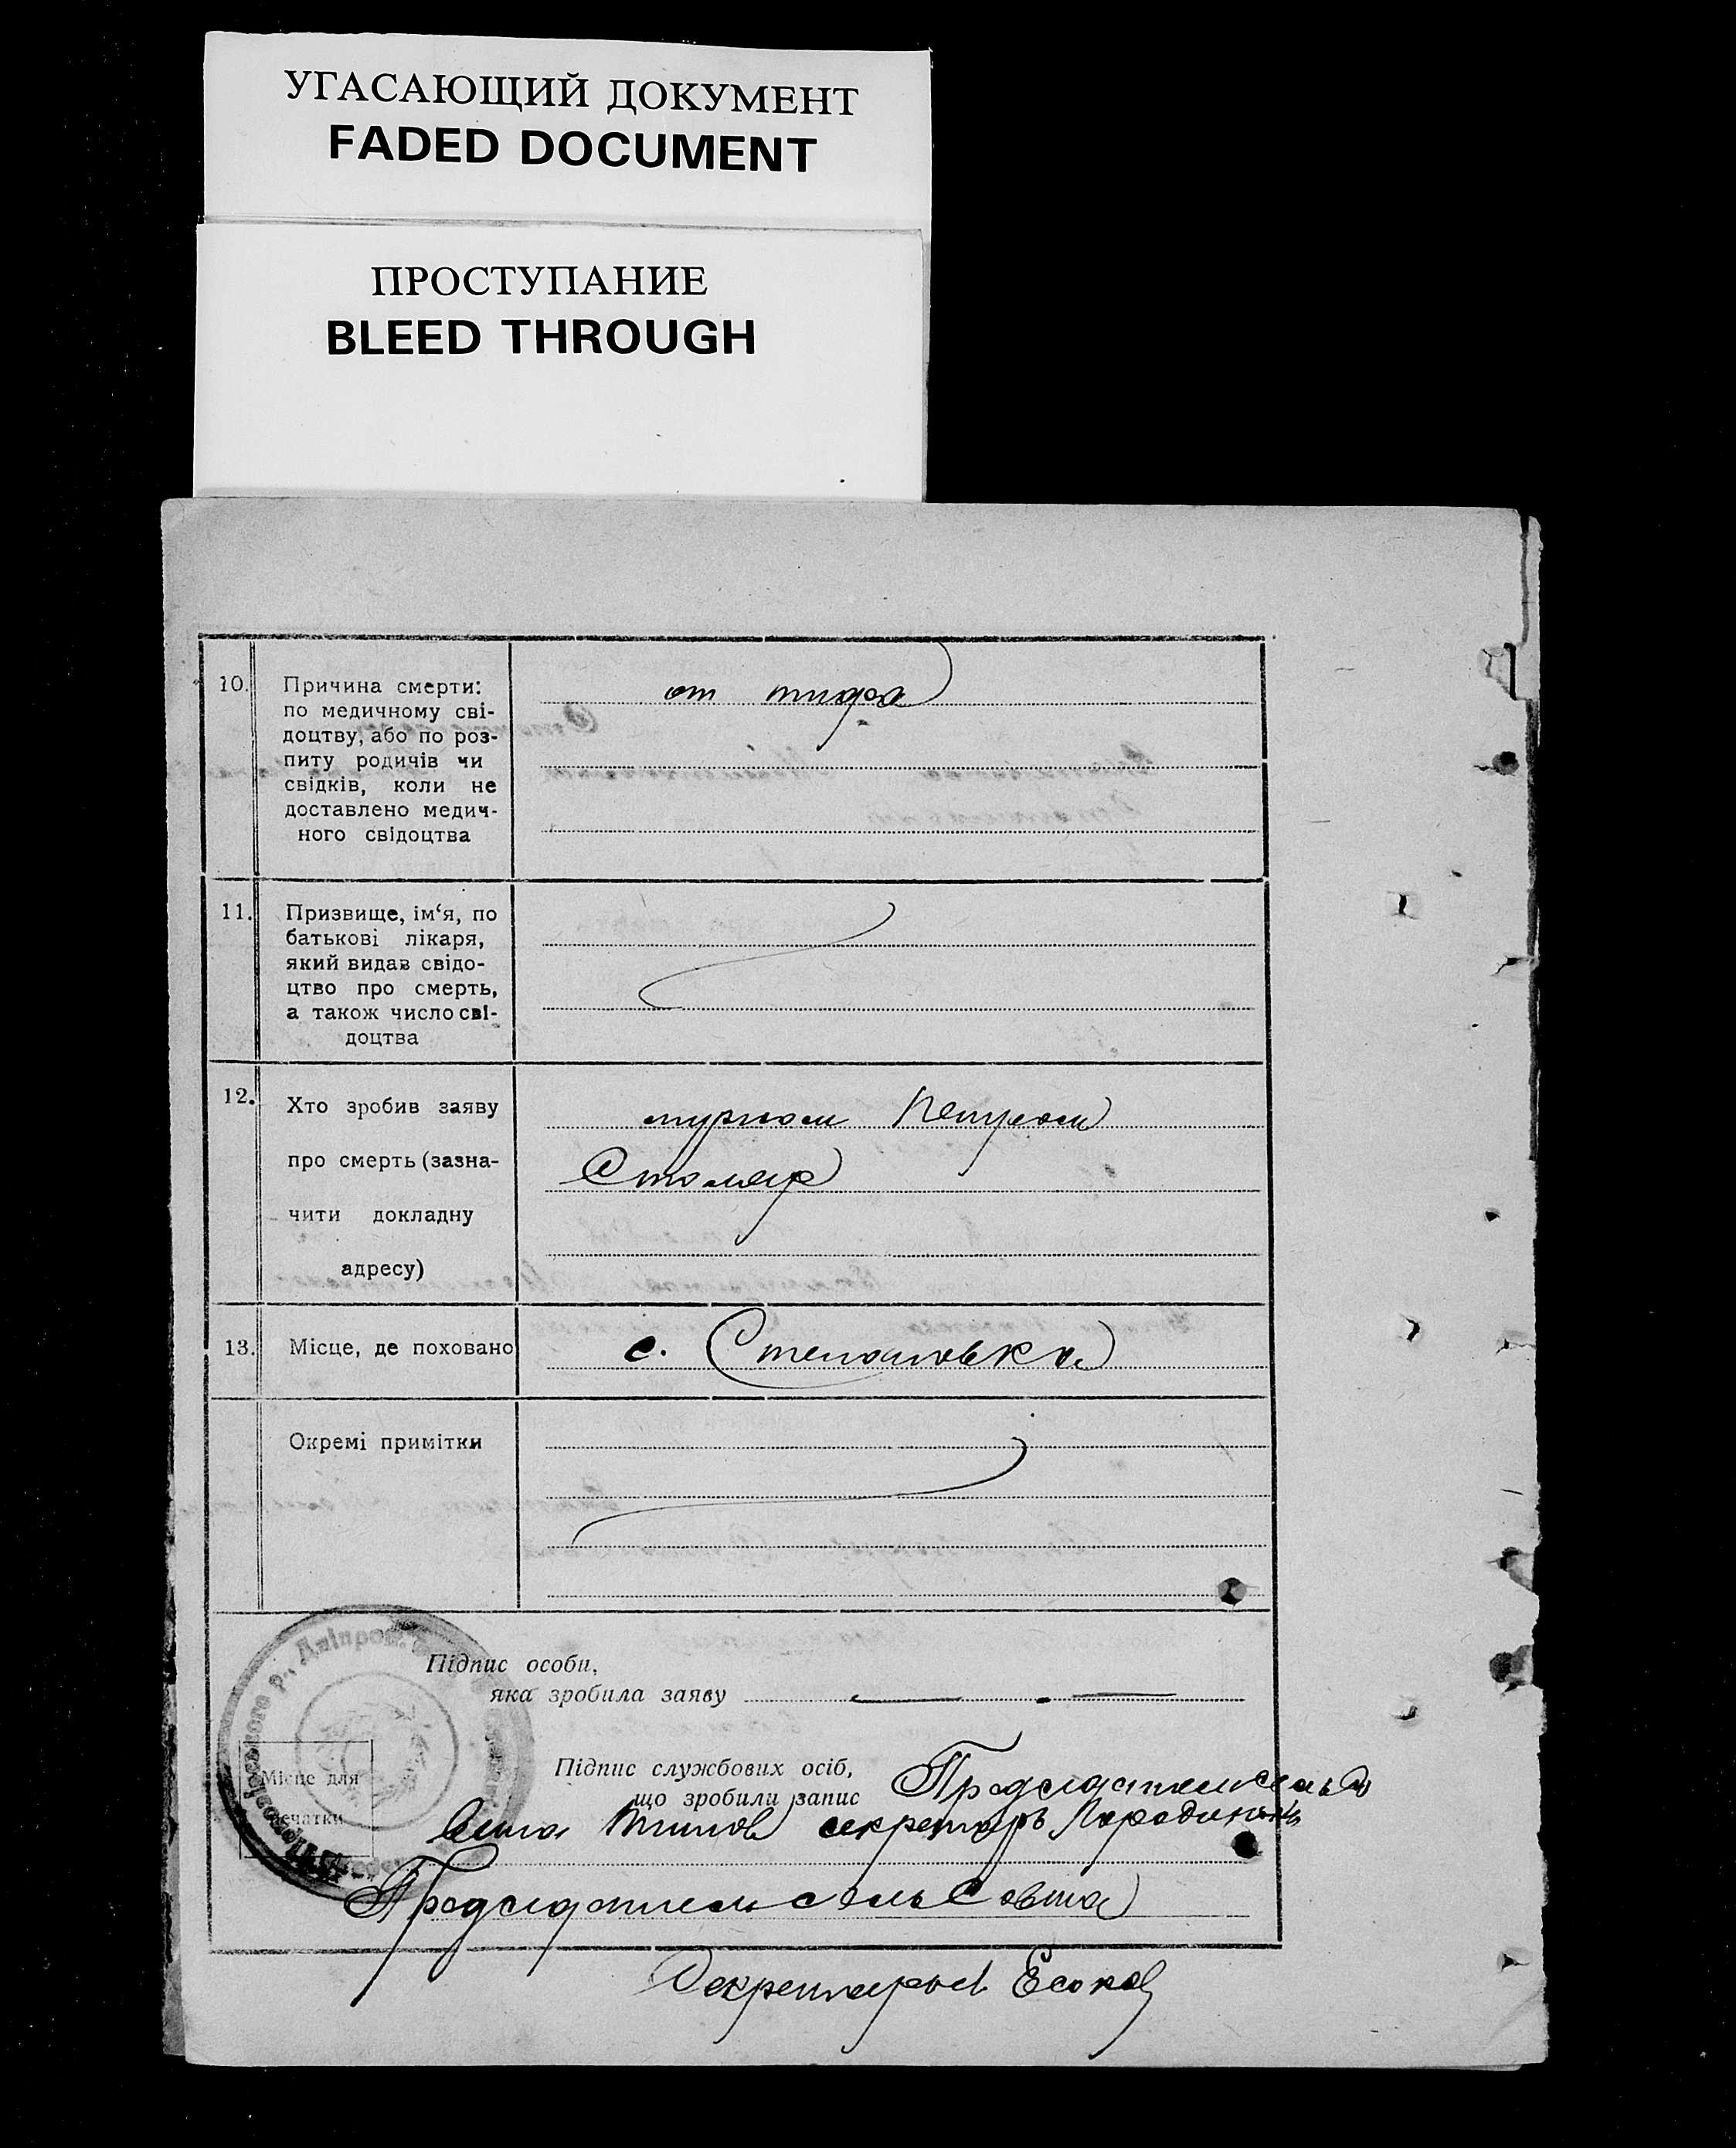 УГАСАЮЩИЙ ДОКУМЕНТ
FADED DOCUMENT
ПРОСТУПАНИЕ
BLEED THROUGH
10. Причина смерти: от тифа
по медичному сві-
доцтву, або по роз-
питу родичів чи
свідків, коли не
доставлено медич-
ного свідоцтва
11. Призвище, ім‘я, по
батькові лікаря,
який видав свідо-
цтво про смерть,
а також число сві-
доцтва
12. Хто зробив заяву
про смерть (зазна-
чити докладну
адресу)
Столяр
13. Місце, де поховано с. Степановка
Окремі примітки
Підпис особи,
яка зробила заяву
Місце для
печатки
Підпис службових осіб,
що зробили запис
секретарь
Председатель сельсовета